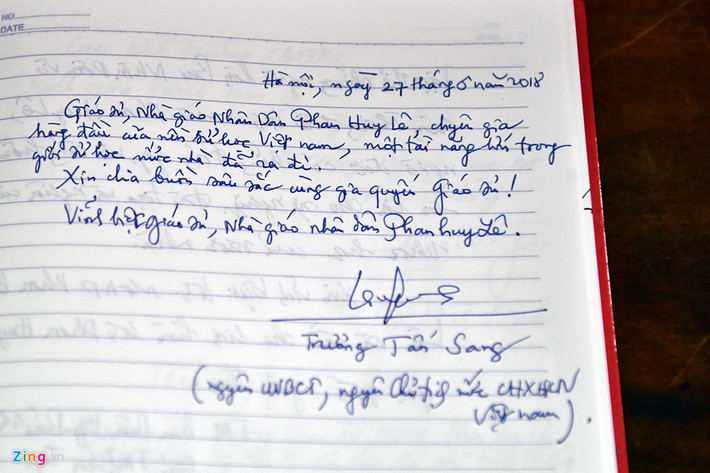 NO.
DATE
Hà nội, ngày 27 tháng 6 năm 2018
Giáo sư, Nhà giáo Nhân Dân Phan Huy Lê, chuyên gia
hàng đầu của nền sử học Việt nam, một tài năng lớn trong
giới sử học nước nhà đã ra đi.
Xin chia buồn sâu sắc cùng gia quyến Giáo sư!
Vĩnh biệt giáo sư, Nhà giáo nhân dân Phan huy Lê.
Trương Tấn Sang
(nguyên UVBCT, nguyên Chủ tịch nước CHXHCN
Việt nam).
Zing.vn